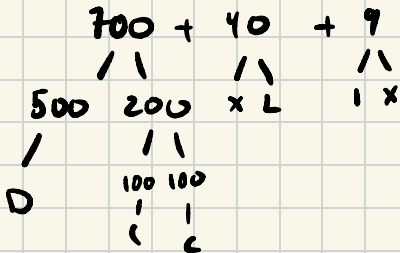 700 + 40 + 9
500 200 X L I X
100 100
D C C